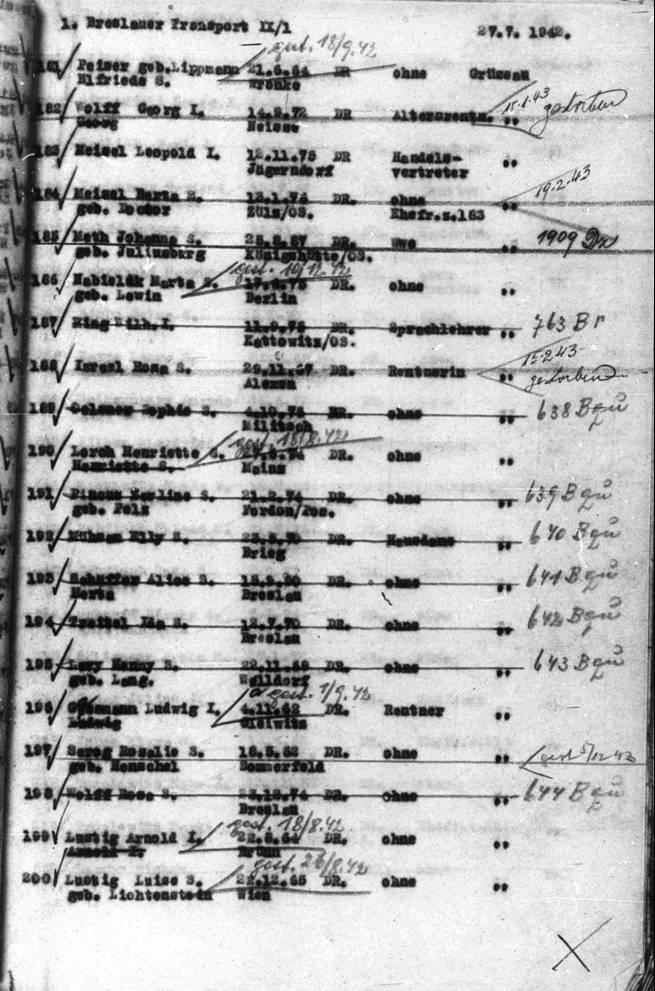 1. Breslauer Transport IX/1 27.7. 1942.
gest. 18/9.42
181 Peiser geb.Lippmann 21.6.64 DR ohne Grüssau
Elfriede S. Wronke
15.1.43 gestorben
182 Wolff Georg I. 14.9.72 DR Altersrentn. "
Georg Neisse
183 Meisel Leopold I. 12.11.75 DR Handels- "
Jägerndorf vertreter
19.2.43
184 Meisel Marta S. 13.1.76 DR. ohne "
geb. Doctor Zülz/OS. Ehefr.z.183
185 Moth Johanna S. DR. Wwe " 1909
geb. Juliusberg Königshütte/OS.
gest. 10/12.42
186 Nabielak Marta S. DR. ohne "
geb. Lewin Berlin
187 Ring Wilh. I. 11.9.75 DR. Sprachlehrer " 763 Br
Kattowitz/OS.
15.2.43
188 Israel Rosa S. 29.11.67 DR. Rentnerin " gestorben
189 Sophie S. 4.10.76 DR. ohne " 638 Bqů
Militsch
gest. 18/8.42
190 Lerch Henriette S. DR. ohne "
Henriette S. Mainz
191 Pincus S. 21.2.74 DR. ohne " 639 Bqů
geb. Pels Fordon/Pos.
192 Mühsam Elly S. DR. Hausdame " 640 Bqů
Brieg
193 Alice S. DR. ohne " 641 Bqů
Herta Breslau
194 Ida S. 12.7.70 DR. ohne " 642 Bqů
Breslau
195 Levy Nanny S. 22.11.69 DR. ohne " 643 Bqů
geb. Lang. Walldorf
gest. 1/9.42
196 Ludwig I. 4.11.62 DR. Rentner "
Ludwig Gleiwitz
197 Sereg Rosalie S. 16.5.62 DR. ohne "
geb. Henschel Sommerfeld
198 Wolff Rosa S. DR. ohne " 644 Bqů
Breslau
gest. 18/8.42
199 Lustig Arnold I. 22.6.64 DR. ohne "
Arnold I. Brünn
gest. 26/8.42
200 Lustig Luise S. 22.12.65 DR. ohne "
geb. Lichtenstein Wien
X